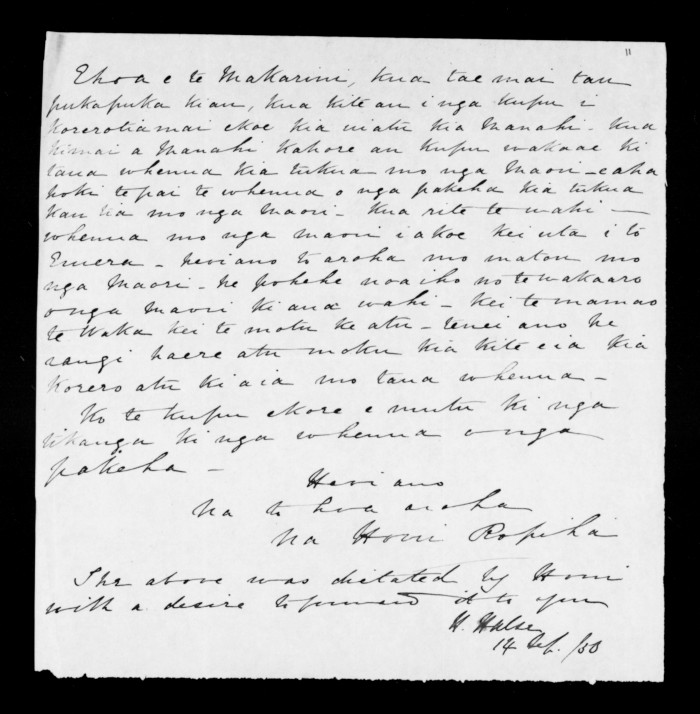 11
Ehoa e te Makarini, kua tae mai tau
pukapuka kiau, kua kite au i nga kupu i
korerotiamai ekoe kia uiatu kia Manahi. Kua
kimai a Manahi Kahore au kupu wakaae ki
tana whenua kia tukua mo nga Maori - eaha
hoki te pai te whenua o nga pakeha kia tukua
kau ia mo nga Maori - Kua rite te wahi —
whenua mo nga maori iakoe kei uta i to
Emera - heoiano to aroha mo matou mo
nga Maori - he pohehe noa iho no te wakaaro
onga Maori ki ana wahi - Kei te mamao
te Waka kei te motu ke atu - tenei ano he
rangi haere atu moku kia kite eia kia
Korero atu ki aia mo tana whenua -
Ko te kupu ekore e mutu ki nga
tikanga ki nga whenua onga
pakeha -
Heoi ano
Na to hoa aroha
Na Honi Ropiha
The above was dictated by Honi
with a desire to forward it to you
H. Halse
14 /50